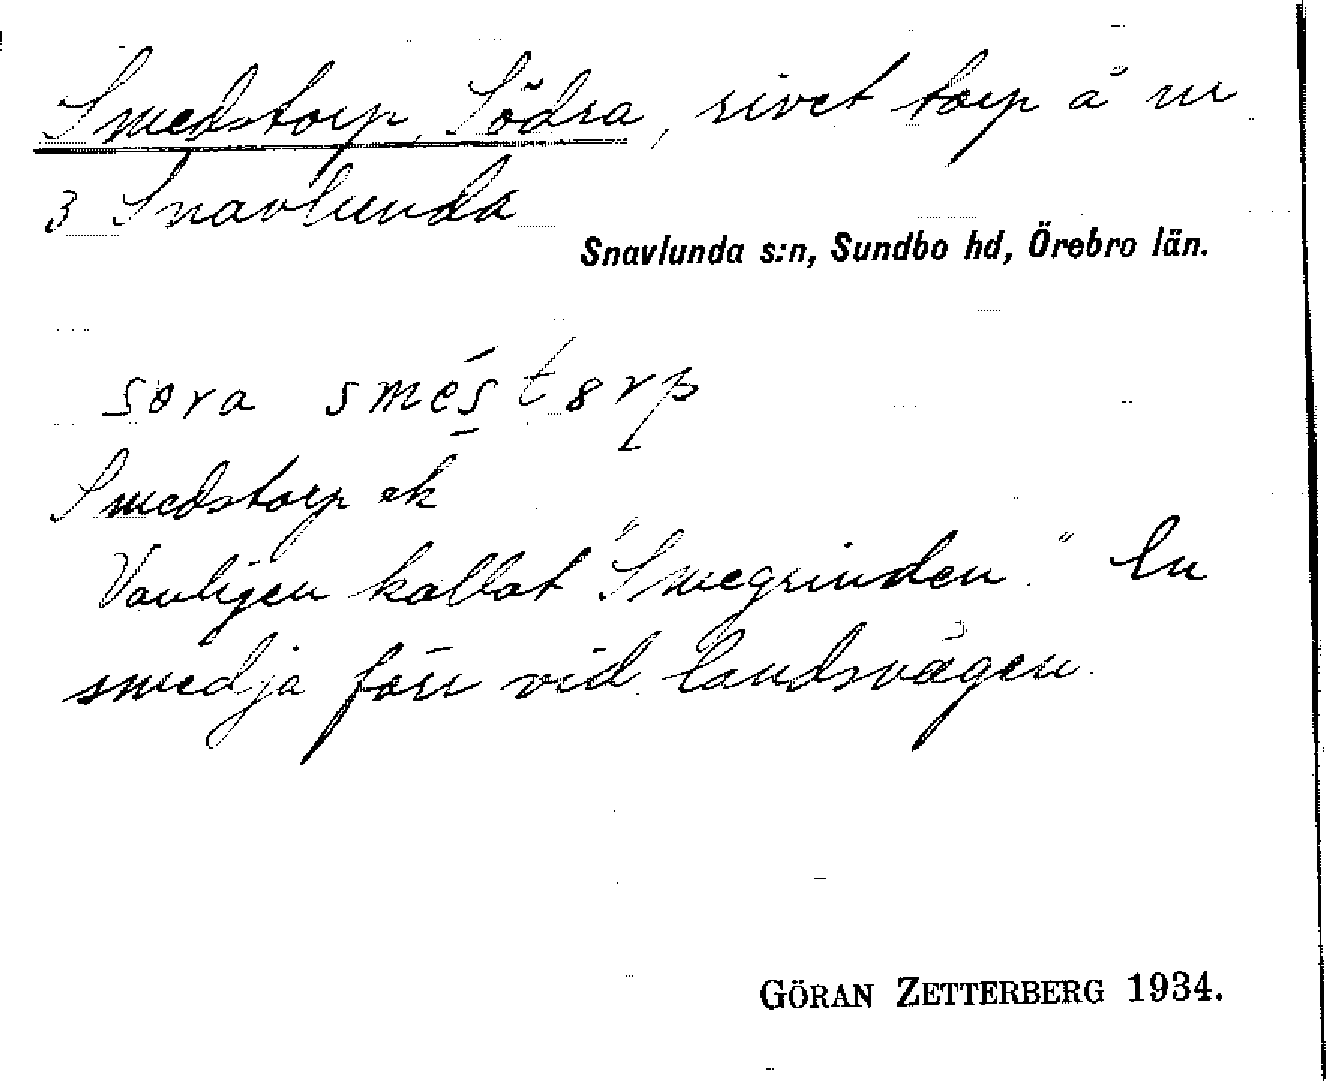 Smedstorp, Södra, rivet torp å nr
3 Snavlunda
Snavlunda s:n, Sundbo hd, Örebro län.
søra sméstɵrp
Smedstorp ek
Vanligen kallat "Smegrinden." En
smedja förr vid landsvägen.
GÖRAN ZETTERBERG 1934.